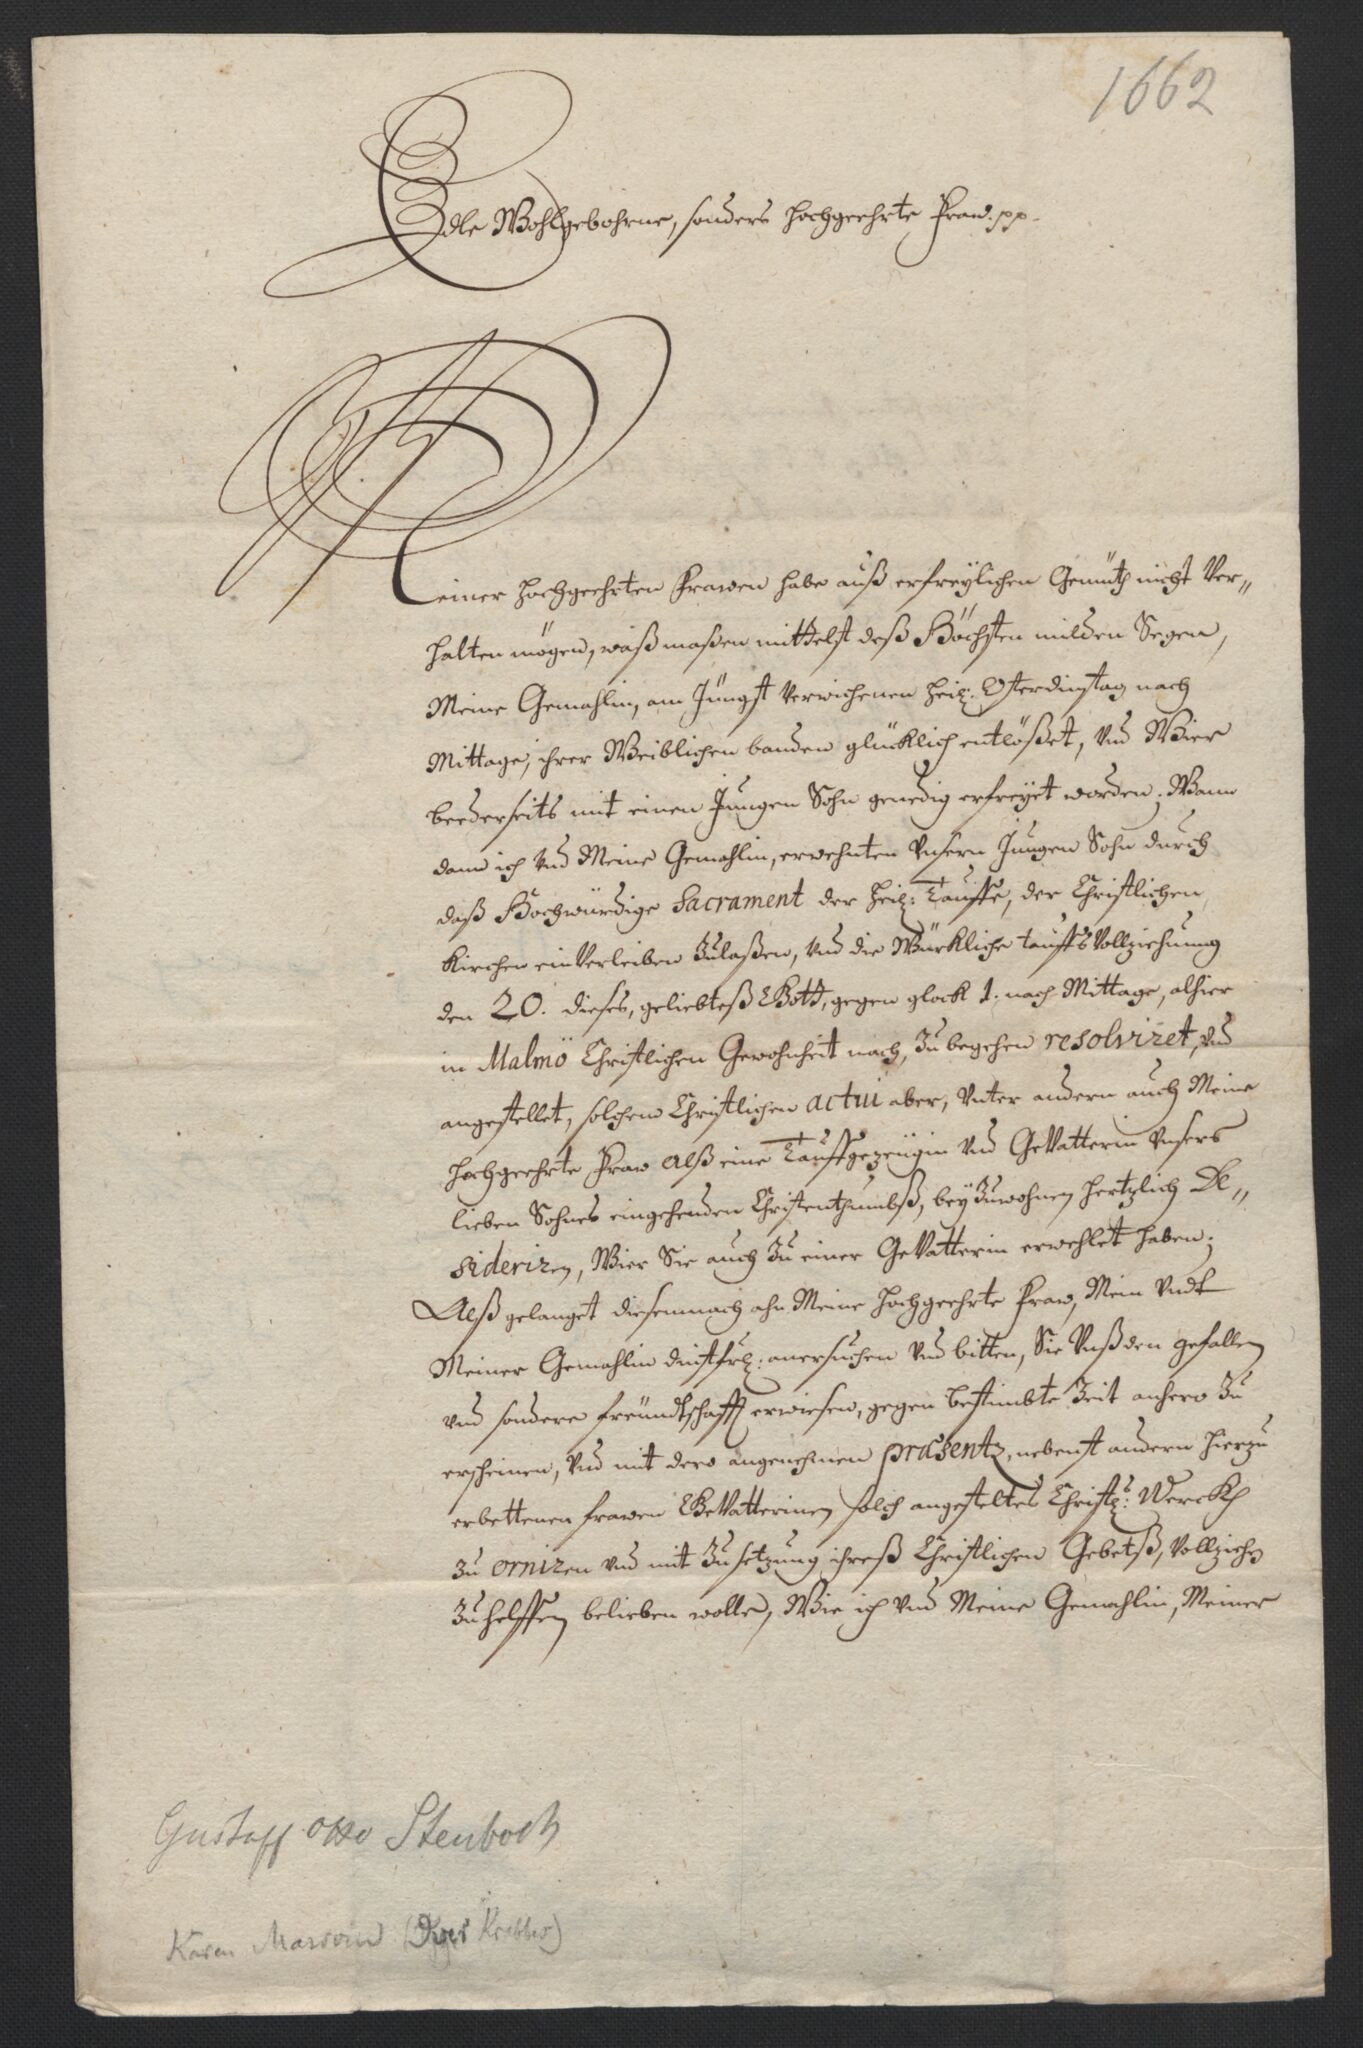 1662
Edle Wohlgebohrne, sonders hochgeehrte Fraw. pp.
Meiner hochgeehrten Frawen habe auß erfreylichen Gemüth nicht Ver-
halten mögen, waß maßen mittelst deß Höchsten milden Segen,
Meine Gemahlin, am Jüngst Verwichenen heil: Osterdinstag nach
Mittage, ihrer Weiblichen banden glücklich entlößet, vnd Wier
beederseits mit einen Jungen Sohn genedig erfreyet worden; Wann
dann ich vnd Meine Gemahlin, erwehnten Vnsern Jungen Sohn durch
daß Hochwürdige Sacrament der heil: Tauffe, der Christlichen
Kirchen einVerleiben Zulaßen, vnd die Würkliche tauffsVollziehung
den 20. dieses, geliebteß Gott, gegen glock 1. nach Mittage, alhier
in Malmö Christlichen Gewohnheit nach, Zu begehen resolvizet, vnd
angestellet, solchem Christlichen actui aber, Vnter andern auch Meine
hochgeehrte Fraw alß eine Tauffgezeügin vnd GeVatterin Vnsers
lieben Sohnes eingehenden Christenthumbß, bey Zuwohnen hertzlich De-
siderizen, Wier Sie auch Zu einer GeVatterin erwehlet haben;
Alß gelanget diesemnach ahn Meine hochgeehrte Fraw, Mein Vndt
Meiner Gemahlin dinstfrl: anersuchen vnd bitten, Sie Vnß den gefallen
vnd sondere freündtschafft erwiesen, gegen bestimbte Zeit anhero Zu
erscheinen, vnd mit dero angenehmen præsentz, nebenst andern hierzu
erbettenen frawen GeVatterinen, solch angesteltes Christl: Werckh
Zu ornizen vnd mit Zusetzung ihreß Christlichen Gebetß, Vollziehen
Zuhelffen belieben wolle, Wie ich vnd Meine Gemahlin, Meiner
Gustaff Otto Stenboch
Karen Marsvin (Krabbes)